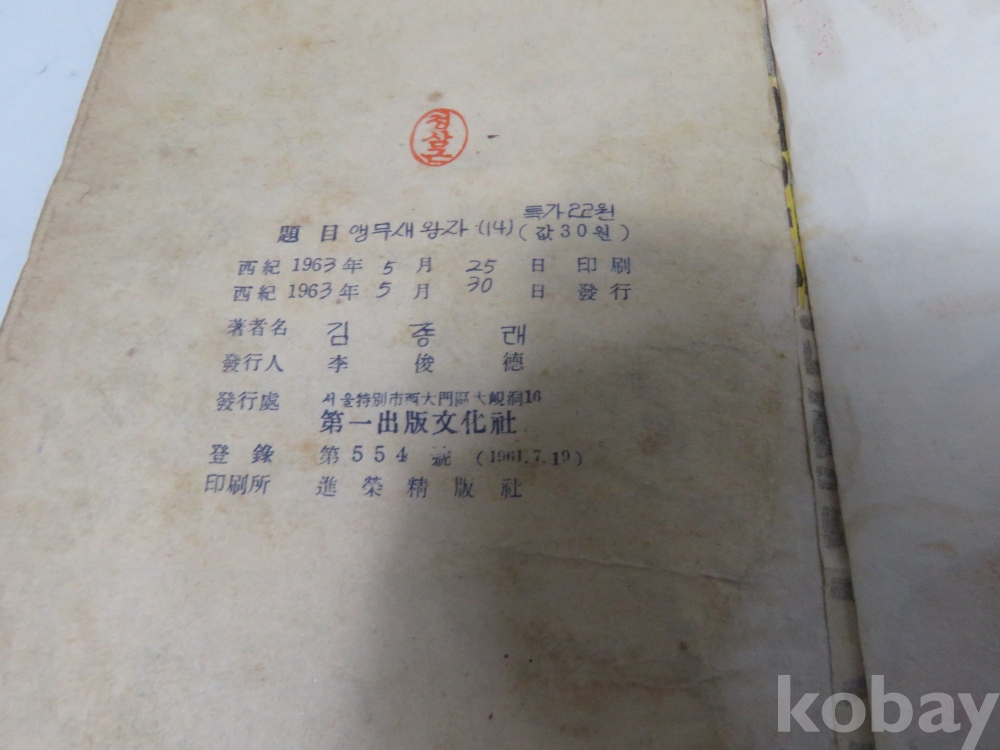 정삼근
특가 22원
題目 앵무새 왕자 (14) (값 30 원)
西紀 1963 年 5 月 25 日 印刷
西紀 1963 年 5 月 30 日 發行
著者名 김 종 래
發行人 李 俊 德
發行處 서울特別市西大門區大峴洞16
第一出版文化社
登錄 第 554 號 (1961.7.19)
印刷所 進榮精版社
kobay